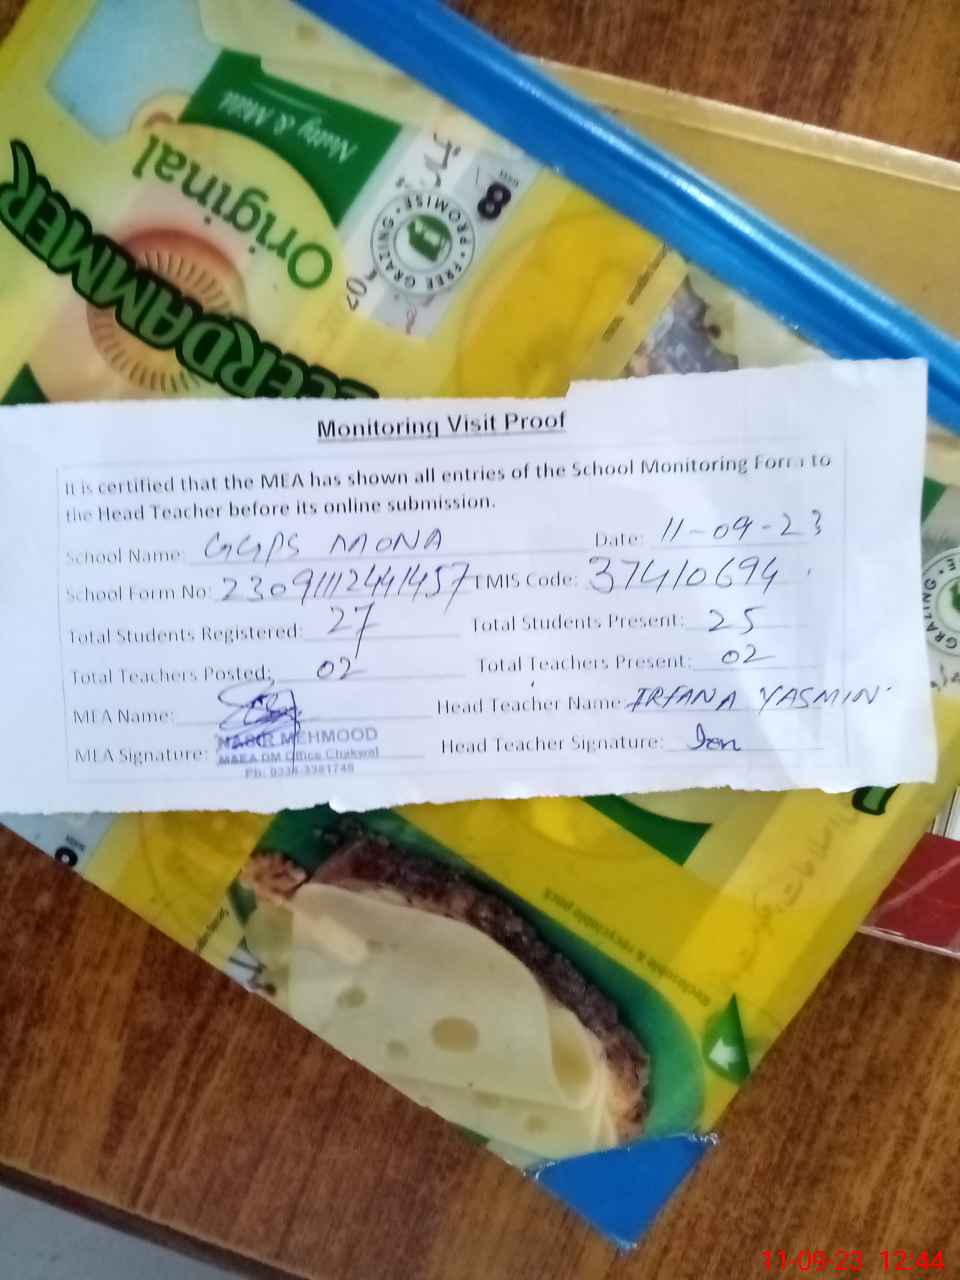 Nutty & Mild
Original
8
FREE GRAZING PROMISE
Monitoring Visit Proof
It is certified that the MEA has shown all entries of the School Monitoring Form to
the Head Teacher before its online submission.
School Name: GGPS MONA Date: 11-09-23
School Form No: EMIS Code: 37410694
Total Students Registered: 27 Total Students Present: 25
Total Teachers Posted: 02 Total Teachers Present: 02
MEA Name: Head Teacher Name: IRFANA YASMIN
MEA Signature: Head Teacher Signature:
MEHMOOD
M&EA DM Office Chakwal
Reclosable & recyclable pack
GRAZING
11-09-23 12:44